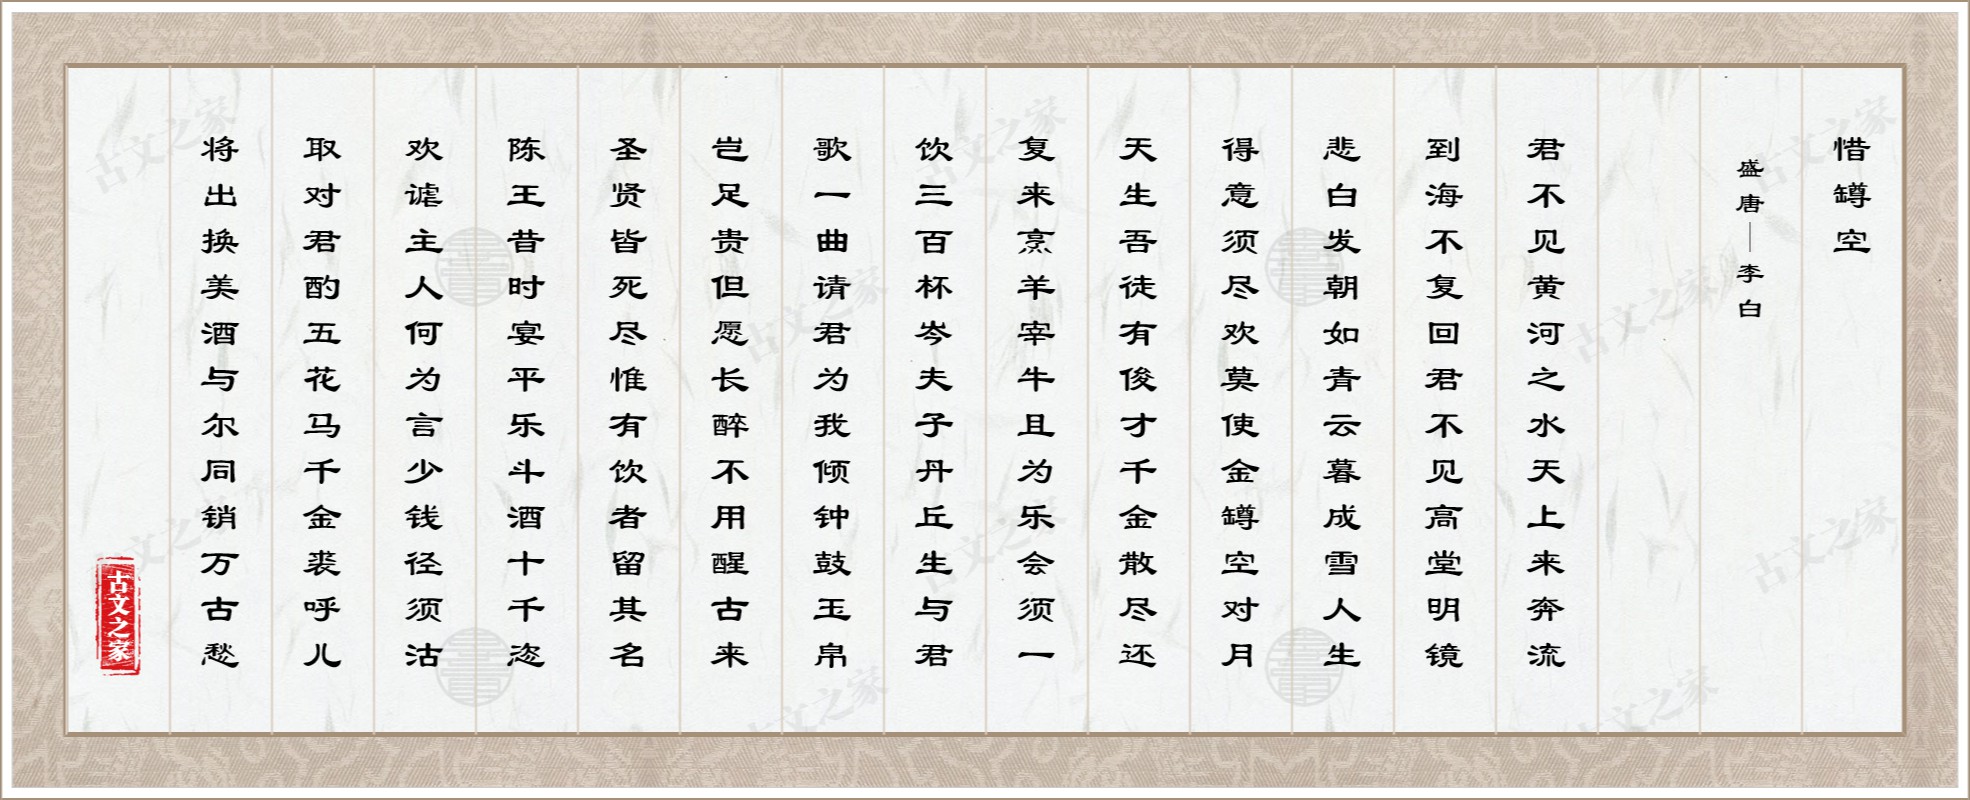 惜罇空
盛唐—李白
君不见黄河之水天上来奔流
到海不复回君不见高堂明镜
悲白发朝如青云暮成雪人生
得意须尽欢莫使金罇空对月
天生吾徒有俊才千金散尽还
复来烹羊宰牛且为乐会须一
饮三百杯岑夫子丹丘生与君
歌一曲请君为我倾钟鼓玉帛
岂足贵但愿长醉不用醒古来
圣贤皆死尽惟有饮者留其名
陈王昔时宴平乐斗酒十千恣
欢谑主人何为言少钱径须沽
取对君酌五花马千金裘呼儿
将出换美酒与尔同销万古愁
古文之家
古文之家
古文之家
古文之家
古文之家
古文之家
古文之家
古文之家
古文之家
古文之家
古文之家